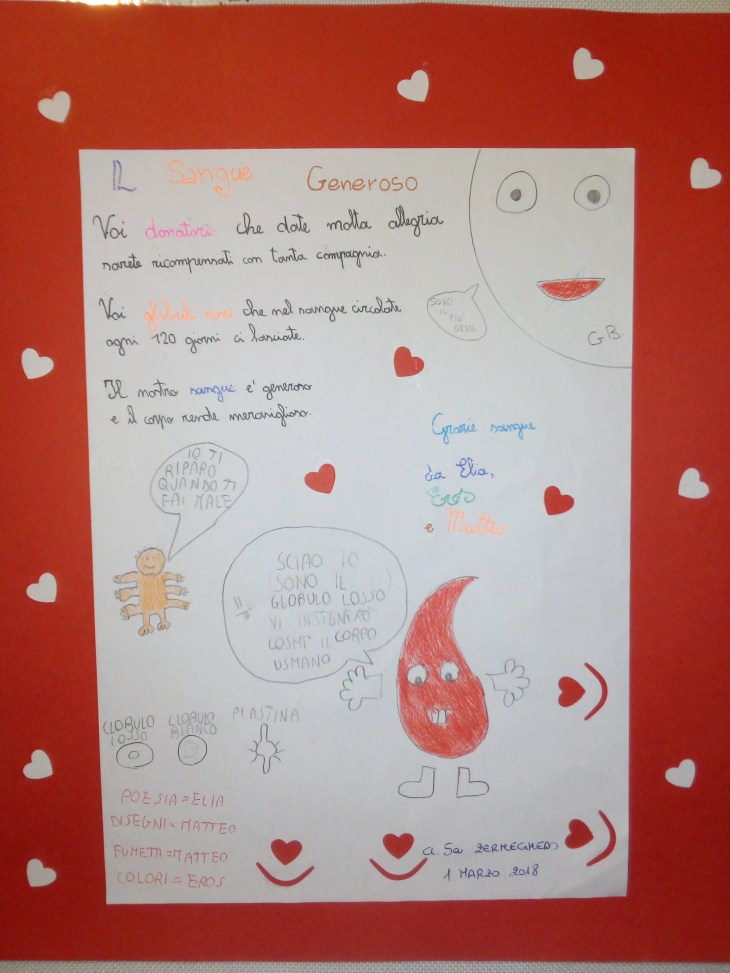 IL Sangue Generoso
Voi donatori che date molta allegria
sarete ricompensati con tanta compagnia.
Voi globuli rossi che nel sangue circolate
ogni 120 giorni ci lasciate.
Il nostro sangue e' generoso
e il corpo rende meraviglioso.
SONO
IL
PIU'
G.B.
Grazie sangue
da Elia,
Eros
e Matteo
IO TI
RIPARO
QUANDO TI
FAI MALE
SCIAO IO
SONO IL
GLOBULO LOSSO
VI INSEGNERÒ
COSMÌ IL CORPO
USMANO
GLOBULO
LOSSO
GLOBULO
BIANCO
PIASTINA
POESIA = ELIA
DISEGNI = MATTEO
FUMETTI = MATTEO
COLORI = EROS
cl. 5a ZERMEGHEDO
1 MARZO 2018